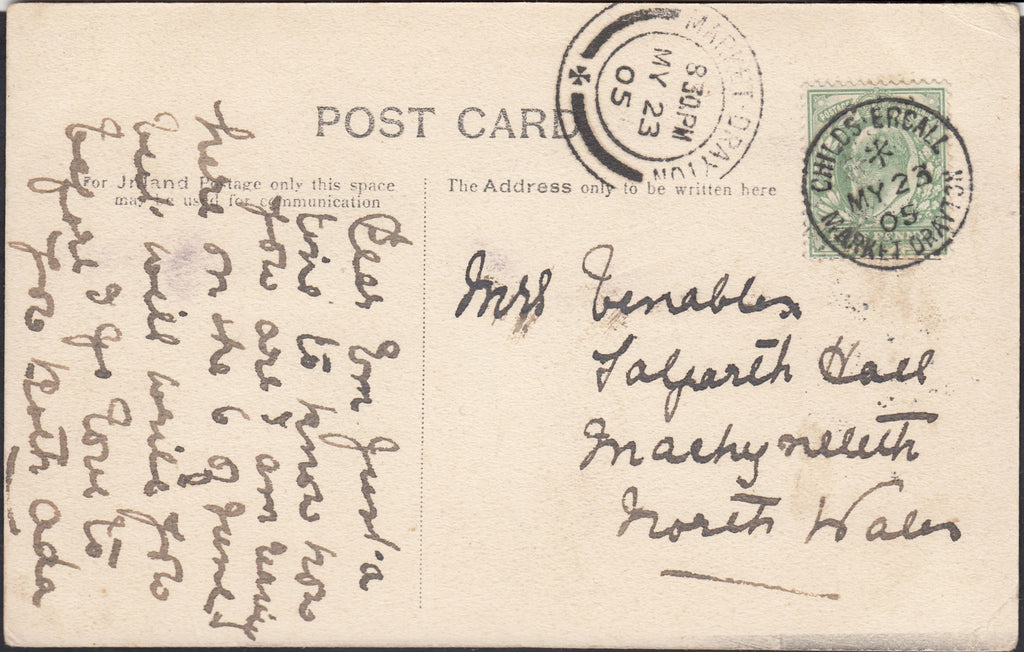 POST CARD
For Inland Postage only this space
may be used for communication
The Address only to be written here
MARKET·DRAYTON
8.30PM
MY 23
05
CHILDS·ERCALL
MY 23
05
MARKET DRAYTON
Mrs Venables
Talgarth Hall
Machynlleth
North Wales
Dear Em Just a
line to know how
you are I am leaving
here on the 6 of June I
will write you
before I go love to
you both Ada